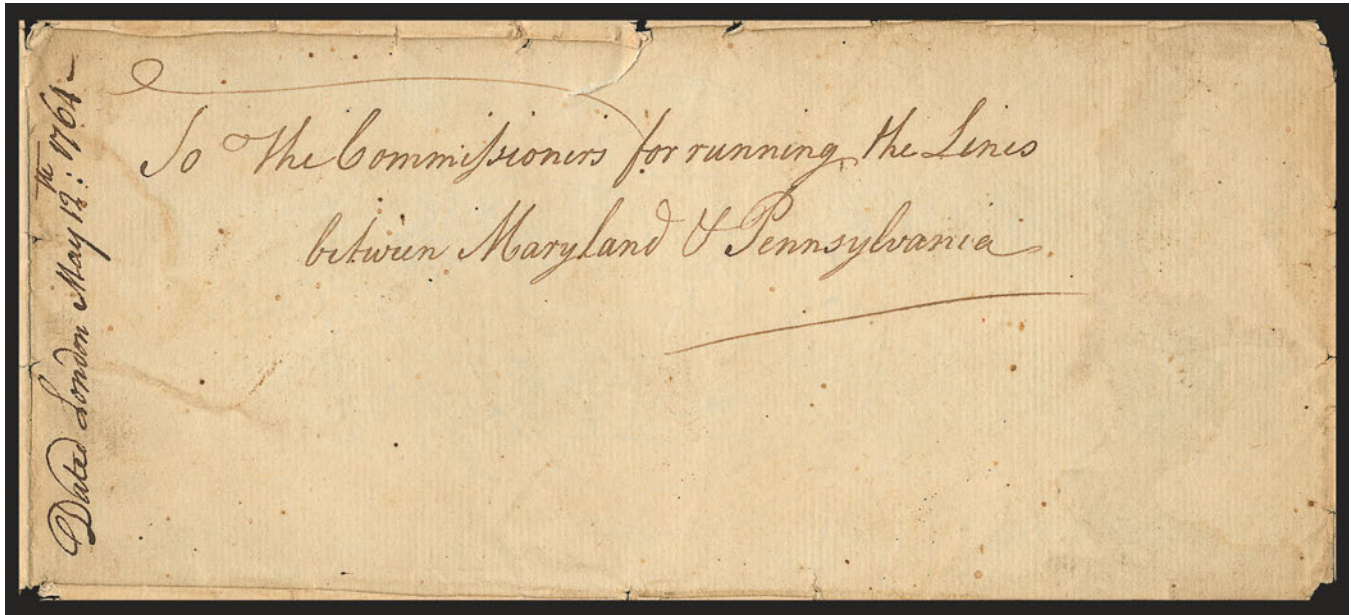 To The Commissioners for running the Lines
between Maryland & Pennsylvania
Dated London May 12.th 1764